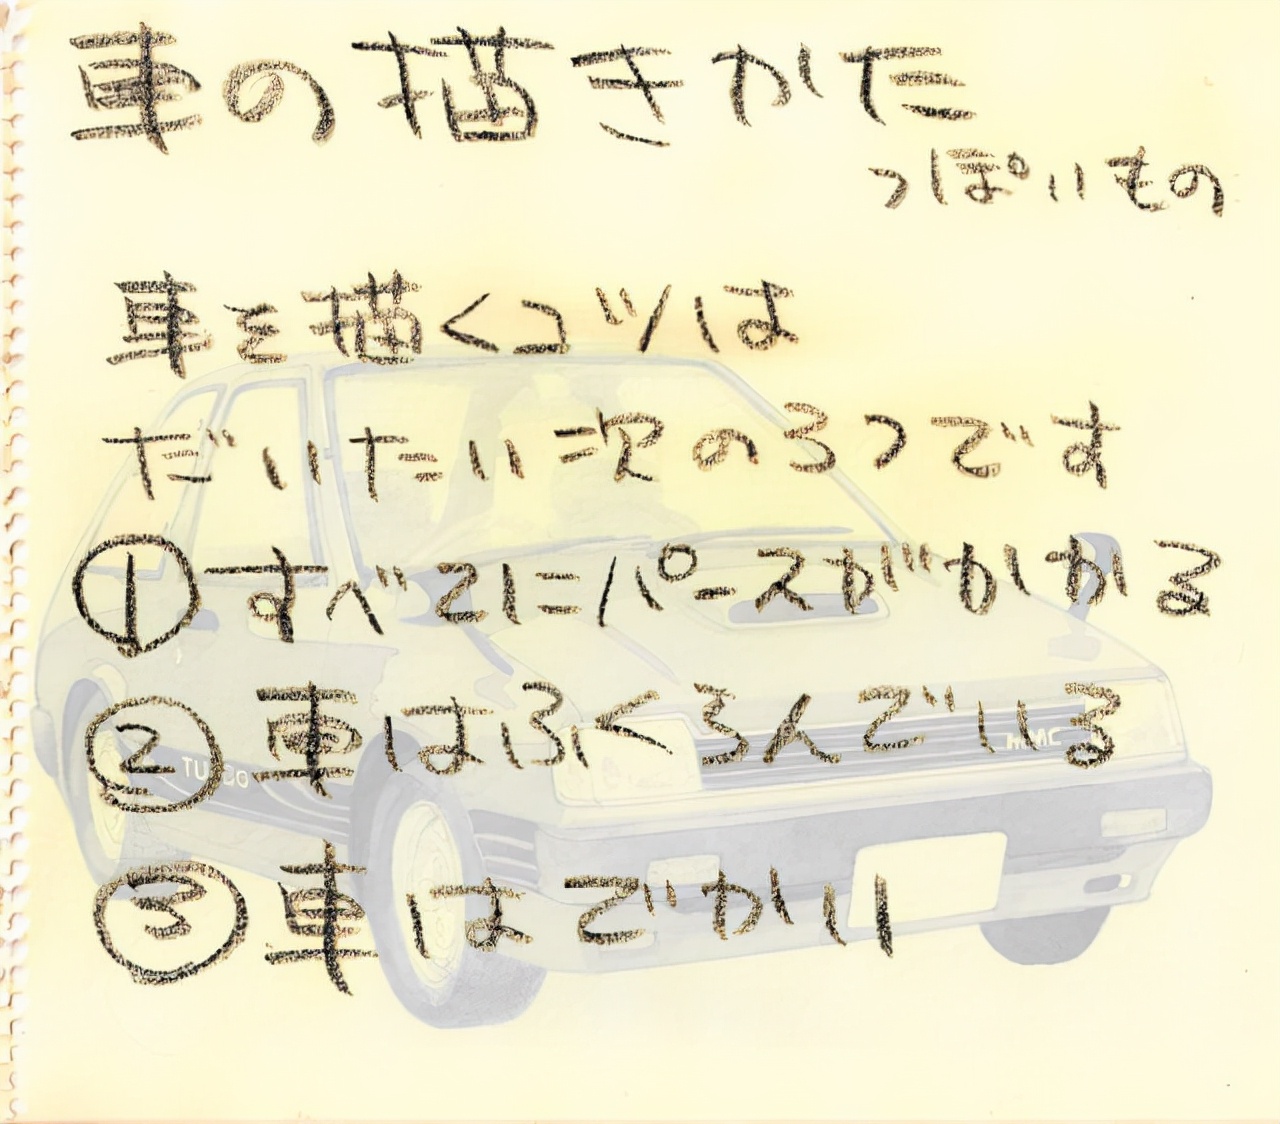 車の描きかた
っぽいもの
車を描くコツは
だいたい次の3つです
①すべてにパースがかかる
②車はふくらんでいる
③車はでかい
TURBO
MMC